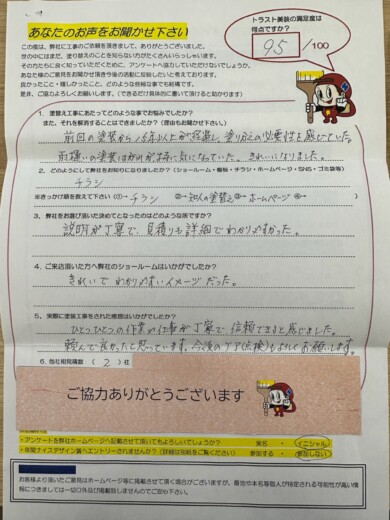 あなたのお声をお聞かせ下さい
この度は、弊社に工事のご依頼を頂きまして、ありがとうございました。
世の中にはまだ、塗り替えのことを知らない方がたくさんいらっしゃいます。
その方たちに良く知っていただくために、アンケートへ協力していただけないでしょうか。
あなた様のご意見をお聞かせ頂き今後の活動に役立したいと考えております。
良かったこと・嬉しかったこと、どのような些細な事でも結構です。
是非、ご協力よろしくお願いします。(できるだけ具体的に書いて頂けると助かります)
トラスト美装の満足度は
何点ですか?
95 /100
1、塗替え工事にあたってどのような事でお悩みでしたか?
また、それを解消することはできましたか?(理由もお聞かせ下さい。)
前回の塗装から15年以上が経過し、塗りかえの必要性を感じていた。
前壁の塗装はがれが特に気になっていた。きれいになりました。
2、どのようにして弊社をお知りになりましたか?(ショールーム・看板・チラシ・ホームページ・SNS・ゴミ袋等)
チラシ
※きっかけ順を教えて下さい(①→ チラシ ②→ 知人の塗替え ③→ ホームページ ④→ )
3、弊社をお選び頂いた決めてとなったのはどのような所ですか?
説明が丁寧で、見積りも詳細でわかりやすかった。
4、ご来店頂いた方へ弊社のショールームはいかがでしたか?
きれいで わかりやすいイメージだった。
5、実際に塗装工事をされた感想はいかがでしたか?
ひとつひとつの作業の仕事が丁寧で、信頼できると感じました。
頼んで良かったと思っています。今後のケア(点検)もよろしくお願いします。
6、他社相見積数 ( 2 ) 社
ご協力ありがとうございます
・アンケートを弊社ホームページへ記載させて頂いてもよろしいでしょうか? 実名 ・ イニシャル
・年間ナイスデザイン賞へエントリーされませんか?(詳細は別紙をご覧ください) 参加する ・ 参加しない
お客様より頂いたご意見はホームページ等に掲載させて頂く場合がございますが、番地や本名等個人が特定される可能性が高い情
報につきましては一切口外及び掲載致しませんのでご安心下さい。